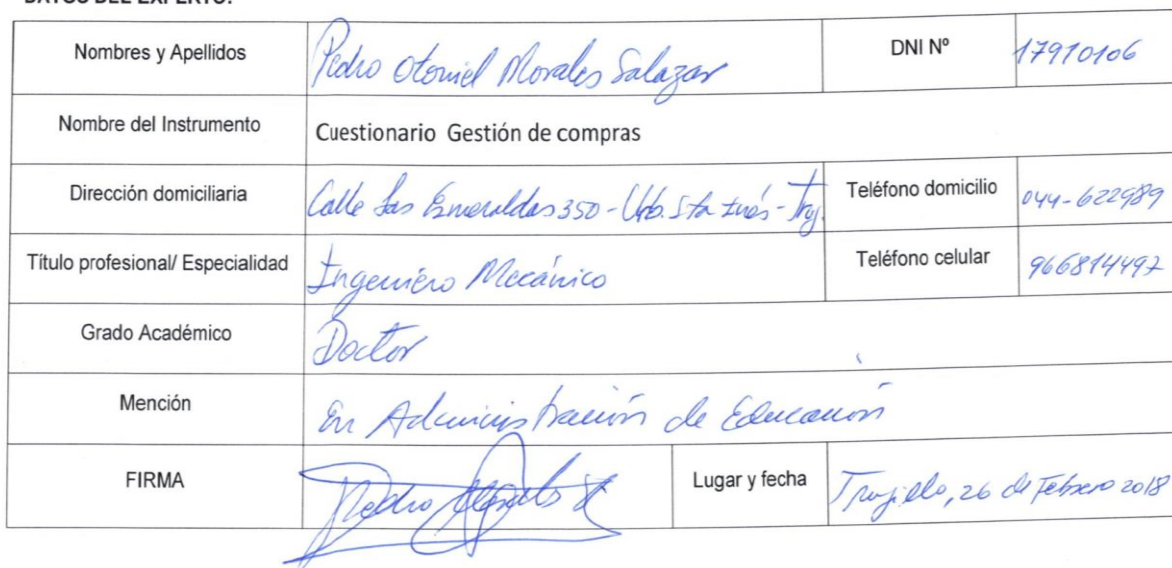 DATOS DEL EXPERTO:
Nombres y Apellidos Pedro Otoniel Morales Salazar DNI Nº 17910106
Nombre del Instrumento Cuestionario Gestión de compras
Dirección domiciliaria Calle Las Esmeraldas 350 - Urb. Sta Inés - Truj. Teléfono domicilio 044-622989
Título profesional/ Especialidad Ingeniero Mecánico Teléfono celular 966814497
Grado Académico Doctor
Mención En Administración de Educación
FIRMA Pedro Morales S Lugar y fecha Trujillo, 26 de Febrero 2018